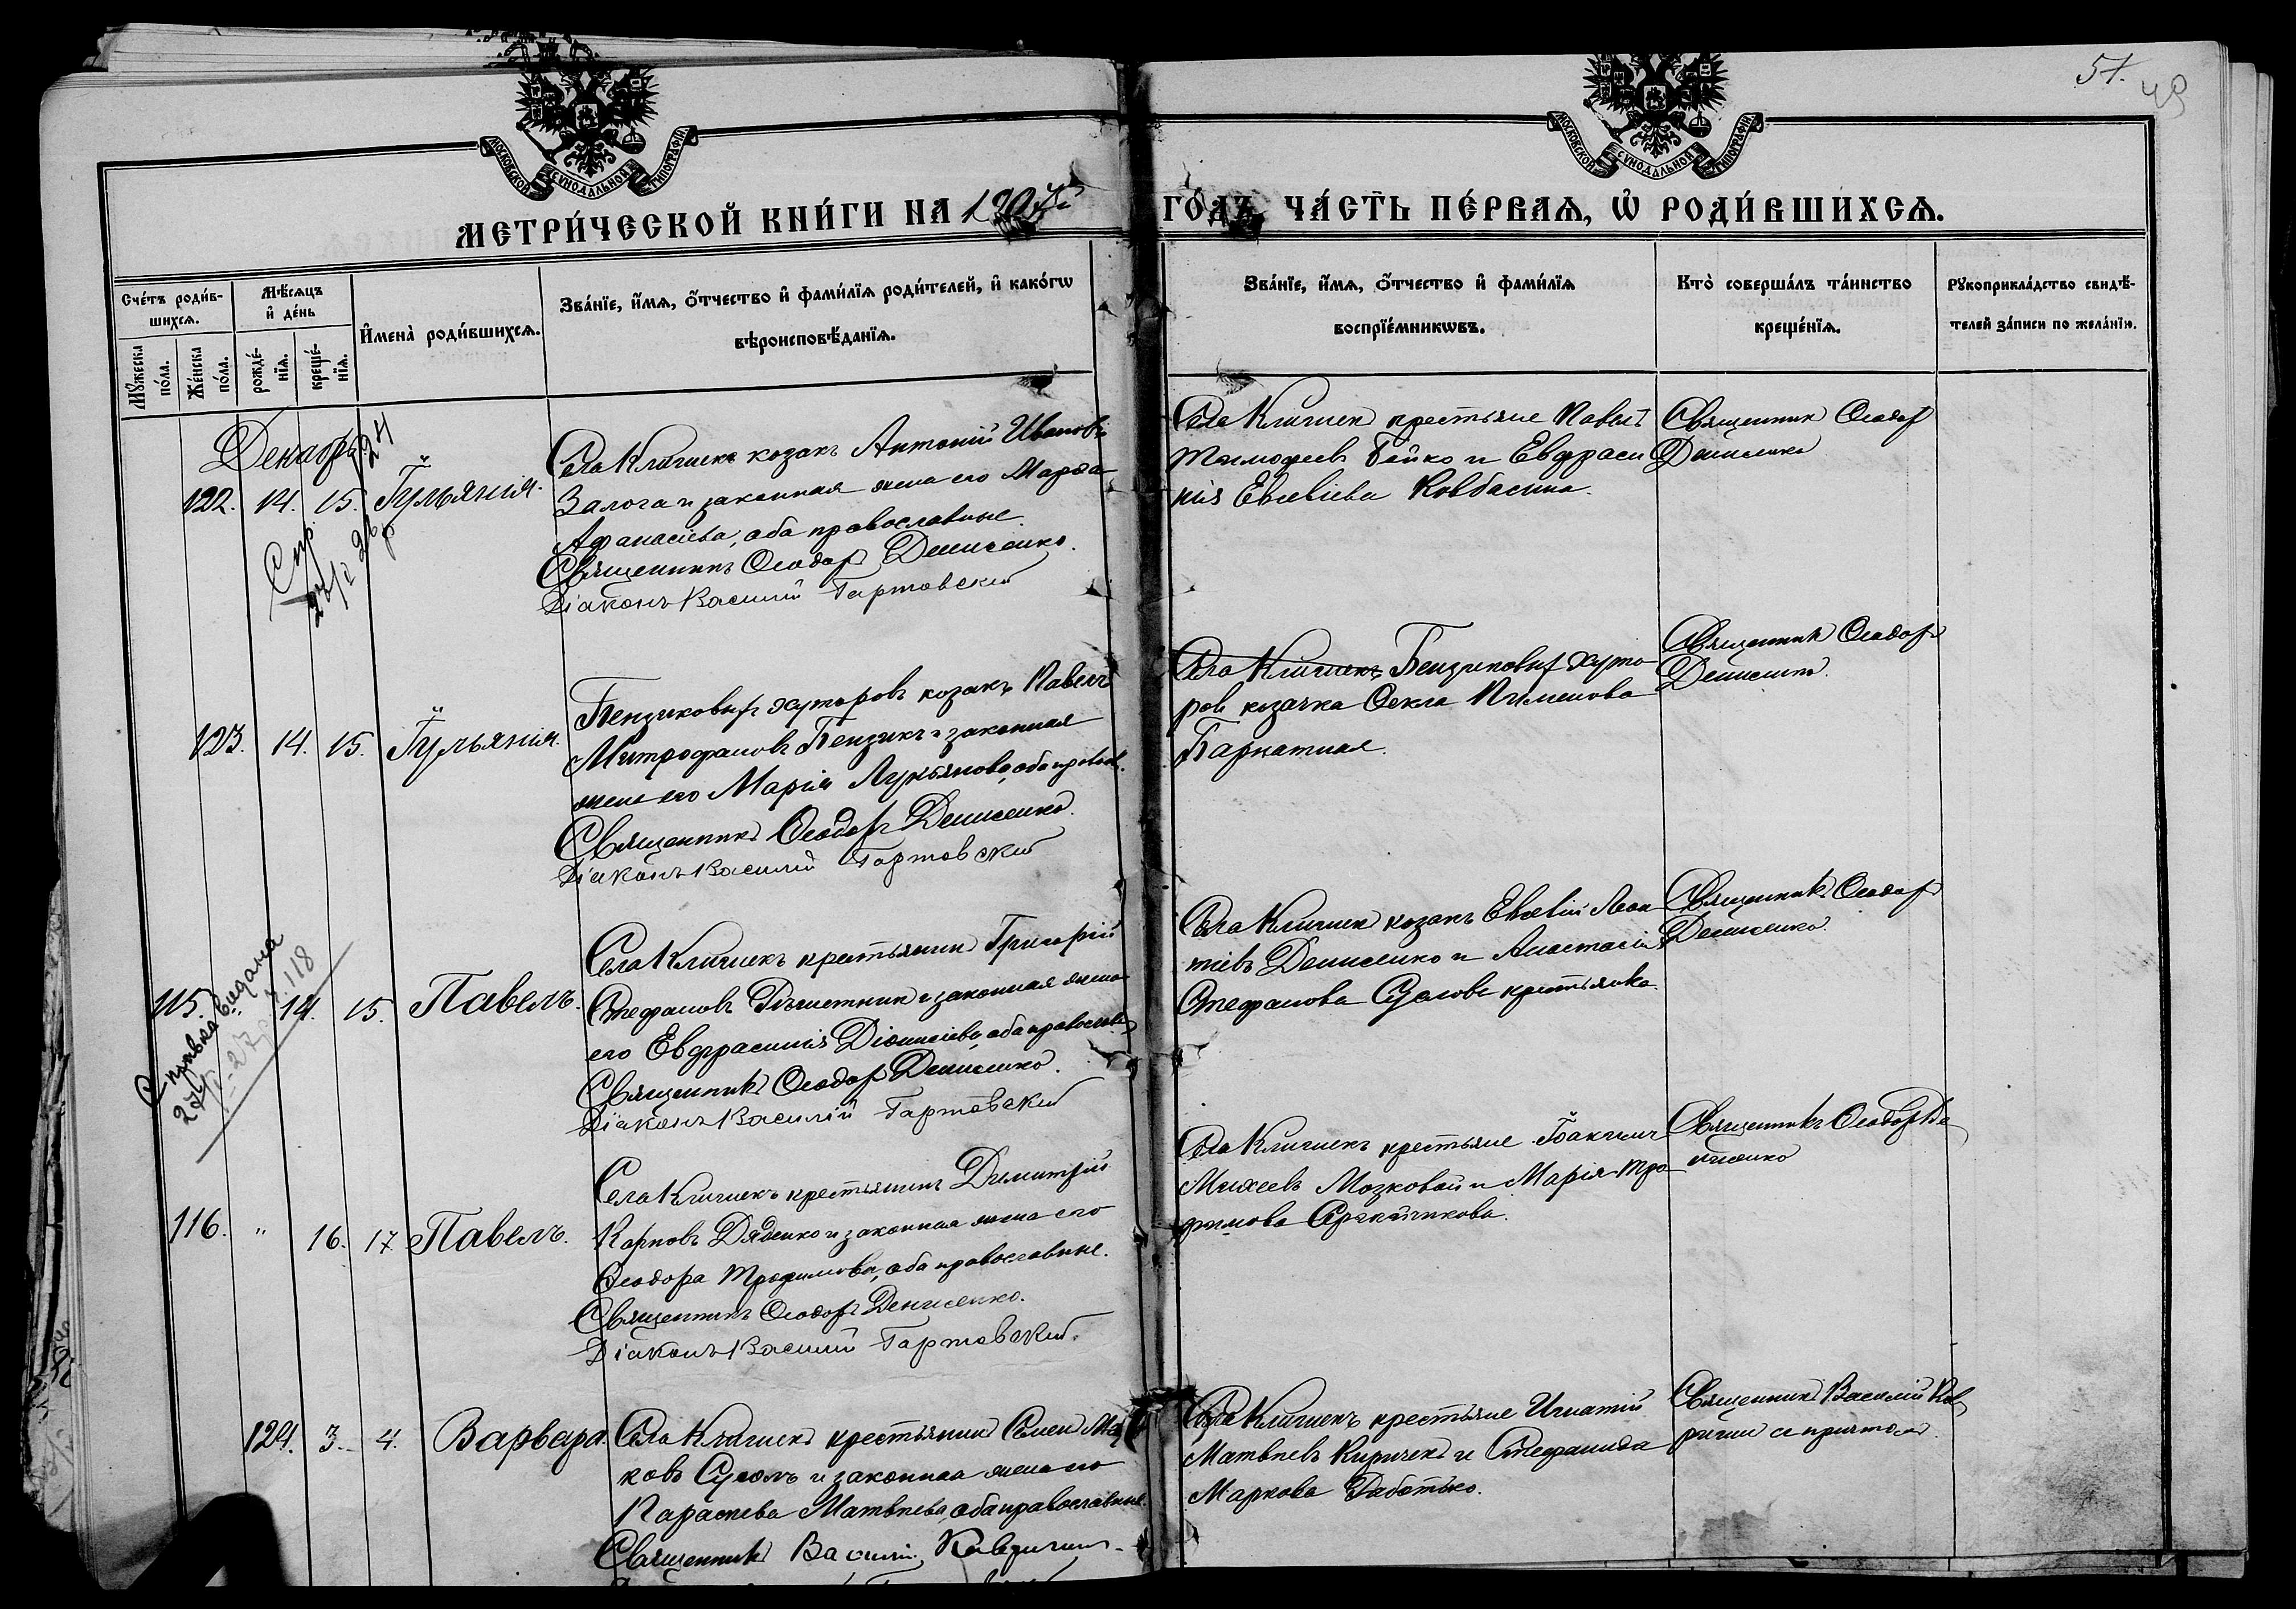 51.
49
МОСКОВСКОЙ СѴНОДАЛЬНОЙ ТИПОГРАФІИ
МОСКОВСКОЙ СѴНОДАЛЬНОЙ ТИПОГРАФІИ
МЕТРИ́ЧЕСКОЙ КНИ́ГИ НА 1907й
ГО́ДЪ, ЧА́СТЬ ПЕ́РВАЯ, Ѡ҆ РОДИ́ВШИХСѦ.
Сче́тъ роди́вшихсѧ.
Мꙋ́жеска по́ла.
Же́нска по́ла.
Мѣ́сѧцъ и҆ де́нь
рожде́нїѧ.
креще́нїѧ.
И҆мена̀ роди́вшихсѧ.
Зва́нїе, и҆́мѧ, ѻ҆́тчество и҆ фами́лїѧ роди́телей, и҆ како́гѡ
вѣроисповѣ́данїѧ.
Зва́нїе, и҆́мѧ, ѻ҆́тчество и҆ фами́лїѧ
воспрїе́мникѡвъ.
Кто̀ соверша́лъ та́инство
креще́нїѧ.
Рꙋкоприкла́дство свидѣ́-
телей за́писи по жела́нїю.
Декабрь
122. 14. 15. Іульянія.
Спр.
Села Кличиекъ козакъ Антоній Ивановъ
Залога и законная жена его Марѳа
Афанасіева, оба православные.
Священникъ Ѳеодоръ Денисенко.
Діаконъ Василій Гартовскій
Села Кличиекъ крестьяне Павелъ
Тимофеевъ Бойко и Евфраси
нія Евсевіева Ковбасина.
Священник Ѳеодор
Денисенко
123. 14. 15. Іульянія.
Бензиковыхъ хуторовъ козакъ Павелъ
Митрофановъ Бензикъ и законная
жена его Марія Лукьянова, оба правосл.
Священникъ Ѳеодоръ Денисенко.
Діаконъ Василій Гартовскій
Села Кличиекъ Бензиковыхъ хуто-
ровъ козачка Ѳекла Пименова
Бархатная.
Священник Ѳеодоръ
Денисенко.
115. " 14. 15. Павелъ.
Справка выдана
118
Села Кличиекъ крестьянинъ Григорій
Стефановъ и законная жена
его Евфрасинія Діонисіева, оба православн.
Священникъ Ѳеодоръ Денисенко.
Діаконъ Василій Гартовскій
Села Кличиек козакъ Евсевій Леон
тіевъ Денисенко и Анастасія
Стефанова крестьянка.
Священникъ Ѳеодоръ
Денисенко.
116. " 16. 17 Павелъ.
Села Кличиекъ крестьянинъ Димитрій
Карповъ Дяденко и законная жена его
Ѳеодора Трофимова, оба православные.
Священникъ Ѳеодоръ Денисенко.
Діаконъ Василій Гартовскій.
Села Кличиекъ крестьяне Іоакимъ
Михеевъ Мозковой и Марія Тро
фимова
Священникъ Ѳеодоръ Де
нисенко
124. 3. 4. Варвара.
Села Кличиекъ крестьянинъ Семен Мар
ковъ и законная жена его
Параскева Матвѣева, оба православные.
Священникъ Василій
Села Кличиекъ крестьяне Игнатій
Матвѣевъ Киричекъ и Стефанида
Маркова
Священникъ Василій
съ причтомъ.